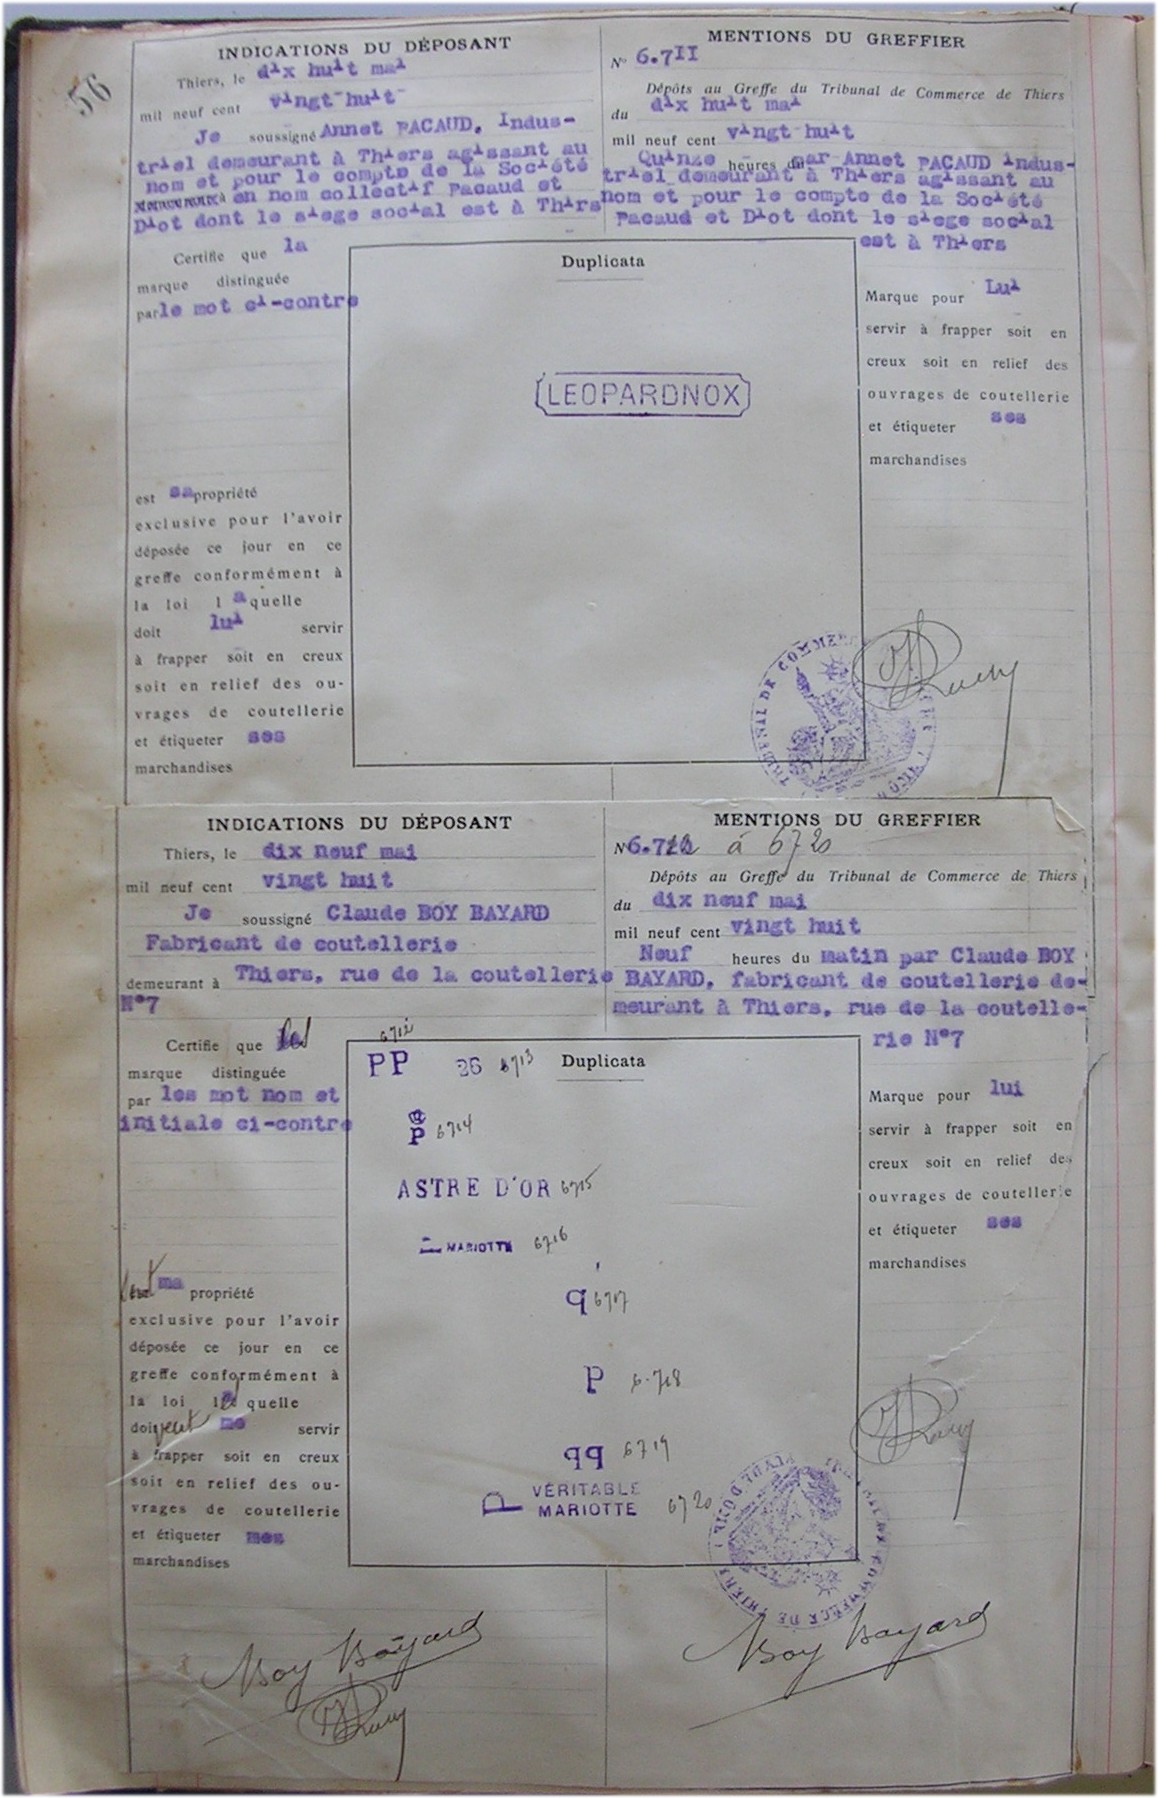 56
INDICATIONS DU DÉPOSANT
Thiers, le dix huit mai
mil neuf cent vingt-huit
Je soussigné Annet PACAUD, Indus-
triel demeurant à Thiers agissant au
nom et pour le compte de la Société
en nom collectif Pacaud et
Diot dont le siege social est à Thirs
Certifie que la
marque distinguée
par le mot ci-contre
est sa propriété
exclusive pour l'avoir
déposée ce jour en ce
greffe conformément à
la loi laquelle
doit lui servir
à frapper soit en creux
soit en relief des ou-
vrages de coutellerie
et étiqueter ses
marchandises
MENTIONS DU GREFFIER
N° 6.7II
Dépôts au Greffe du Tribunal de Commerce de Thiers
du dix huit mai
mil neuf cent vingt huit
Quinze heures du par Annet PACAUD indus-
triel demeurant à Thiers agissant au
nom et pour le compte de la Société
Pacaud et Diot dont le siege social
est à Thiers
Duplicata
LEOPARDNOX
Marque pour Lui
servir à frapper soit en
creux soit en relief des
ouvrages de coutellerie
et étiqueter ses
marchandises
INDICATIONS DU DÉPOSANT
Thiers, le dix neuf mai
mil neuf cent vingt huit
Je soussigné Claude BOY BAYARD
Fabricant de coutellerie
demeurant à Thiers, rue de la coutellerie
N°7
Certifie que les
marque distinguée
par les mot nom et
initiale ci-contre
sont ma propriété
exclusive pour l'avoir
déposée ce jour en ce
greffe conformément à
la loi lesquelle
doivent me servir
à frapper soit en creux
soit en relief des ou-
vrages de coutellerie
et étiqueter mes
marchandises
MENTIONS DU GREFFIER
N°6.712 à 6720
Dépôts au Greffe du Tribunal de Commerce de Thiers
du dix neuf mai
mil neuf cent vingt huit
Neuf heures du matin par Claude BOY
BAYARD, fabricant de coutellerie de-
meurant à Thiers, rue de la coutelle-
rie N°7
Duplicata
6712
PP 26 6713
P 6714
ASTRE D'OR 6715
MARIOTTE 6716
q 6717
P 6.718
qq 6719
P VÉRITABLE
MARIOTTE 6720
Marque pour lui
servir à frapper soit en
creux soit en relief des
ouvrages de coutellerie
et étiqueter ses
marchandises
Boy Bayard
Boy Bayard